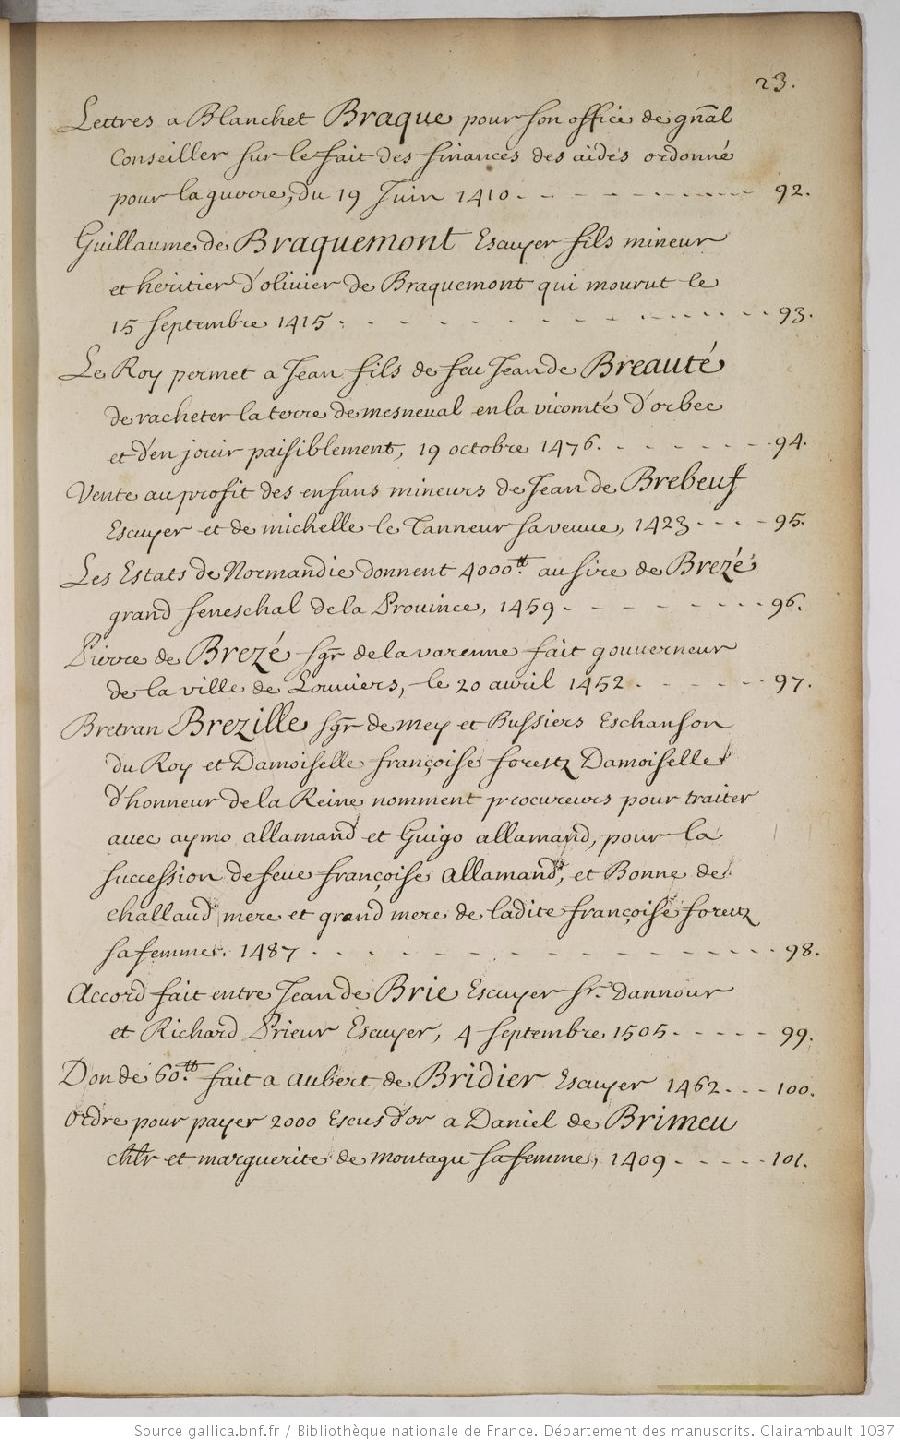 23.
Lettres a Blanchet Braque pour son office de gñal
Conseiller sur le fait des finances des aides ordonné
pour la guerre, du 19 Juin 1410 - - - - - - - - - 92.
Guillaume de Braquemont Escuyer fils mineur
et heritier d'olivier de Braquemont qui mourut le
15 septembre 1415 - - - - - - - - - - - 93.
Le Roy permet a Jean fils de feu Jean de Breauté
de racheter la terre de mesneval en la vicomté d'orbec
et d'en jouir paisiblement, 19 octobre 1476. - - - - - - 94.
Vente au profit des enfans mineurs de Jean de Brebeuf
Escuyer et de michelle le Tanneur sa veuve, 1423 - - - - 95.
Les Estats de Normandie donnent 4000.tt au sire de Brezé
grand seneschal de la Province, 1459 - - - - - - - - 96.
Pierre de Brezé sgr de la varenne fait gouverneur
de la ville de Louviers, le 20 avril 1452 - - - - - - 97.
Bretran Brezille sgr de mey et Bussiers Eschanson
du Roy et Damoiselle françoise forestz Damoiselle
d'honneur de la Reine nomment procureurs pour traiter
avec aymo allamand et Guigo allamand, pour la
succession de feue françoise allamand, et Bonne de
challand mere et grand mere de ladite françoise forestz
sa femme. 1487 - - - - - - - - - - - - 98.
Accord fait entre Jean de Brie Escuyer sr. Dannour
et Richard Prieur Escuyer, 4 septembre 1505 - - - - - 99.
Don de 60.tt fait a aubert de Bridier Escuyer 1462 - - - 100.
Ordre pour payer 2000 Escus d'or a Daniel de Brimeu
chlr et marguerite de montagu sa femme, 1409 - - - - - 101.
Source gallica.bnf.fr / Bibliothèque nationale de France. Département des manuscrits. Clairambault 1037